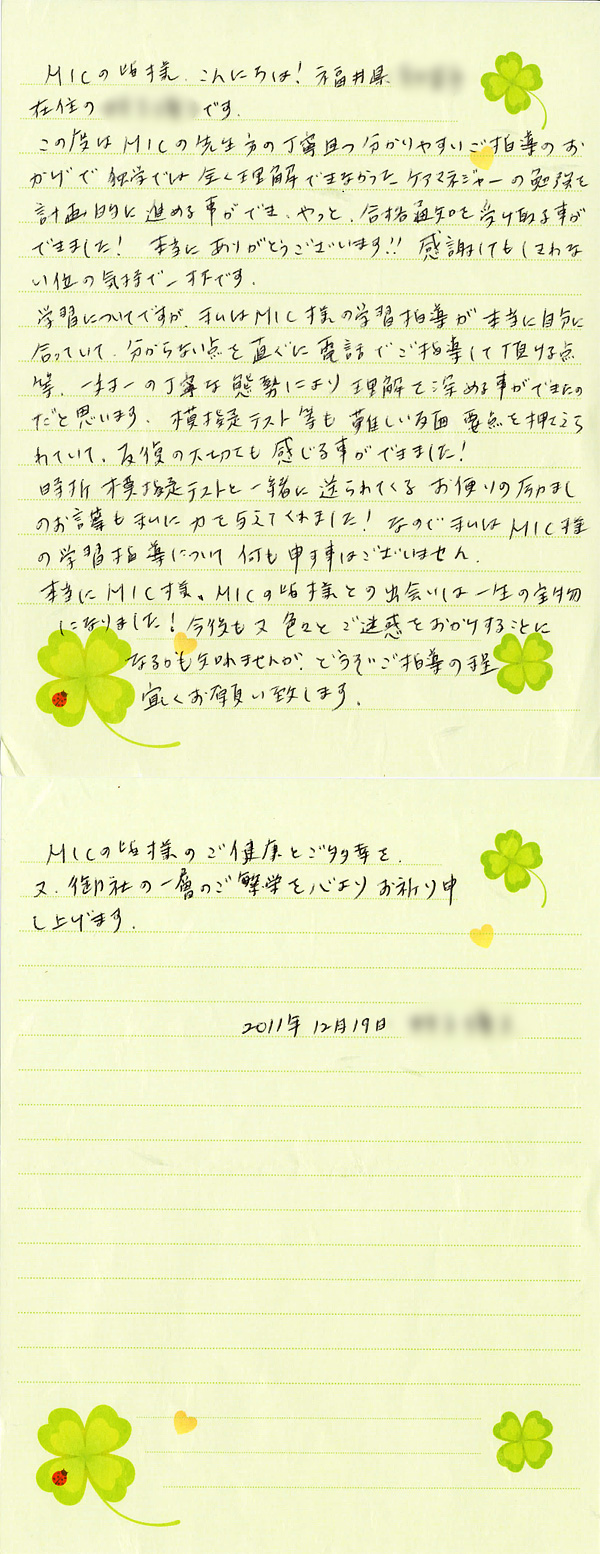 MICの皆様、こんにちは！福井県
在住の です。
この度はMICの先生方の丁寧且つ分かりやすいご指導のお
かげで独学では全く理解できなかったケアマネジャーの勉強を
計画的に進める事ができ、やっと、合格通知を受け取る事が
できました！ 本当にありがとうございます!! 感謝してもしきれな
い位の気持で一杯です。
学習についてですが、私はMIC様の学習指導が本当に自分に
合っていて、分からない点を直ぐに電話でご指導して頂ける点
等、一対一の丁寧な態勢により理解を深める事ができたの
だと思います。模擬テスト等も難しい反面要点を押さえら
れていて、反復の大切さも感じる事ができました！
時折模擬テストと一緒に送られてくるお便りの励まし
のお言葉も私に力を与えてくれました！なので私はMIC様
の学習指導について何も申す事はございません。
本当にMIC様、MICの皆様との出会いは一生の宝物
になりました！今後も又色々とご迷惑をおかけすることに
なるかも知れませんが、どうぞご指導の程
宜しくお願い致します。
MICの皆様のご健康とご多幸を、
又、御社の一層のご繁栄を心よりお祈り申
し上げます。
2011年12月19日